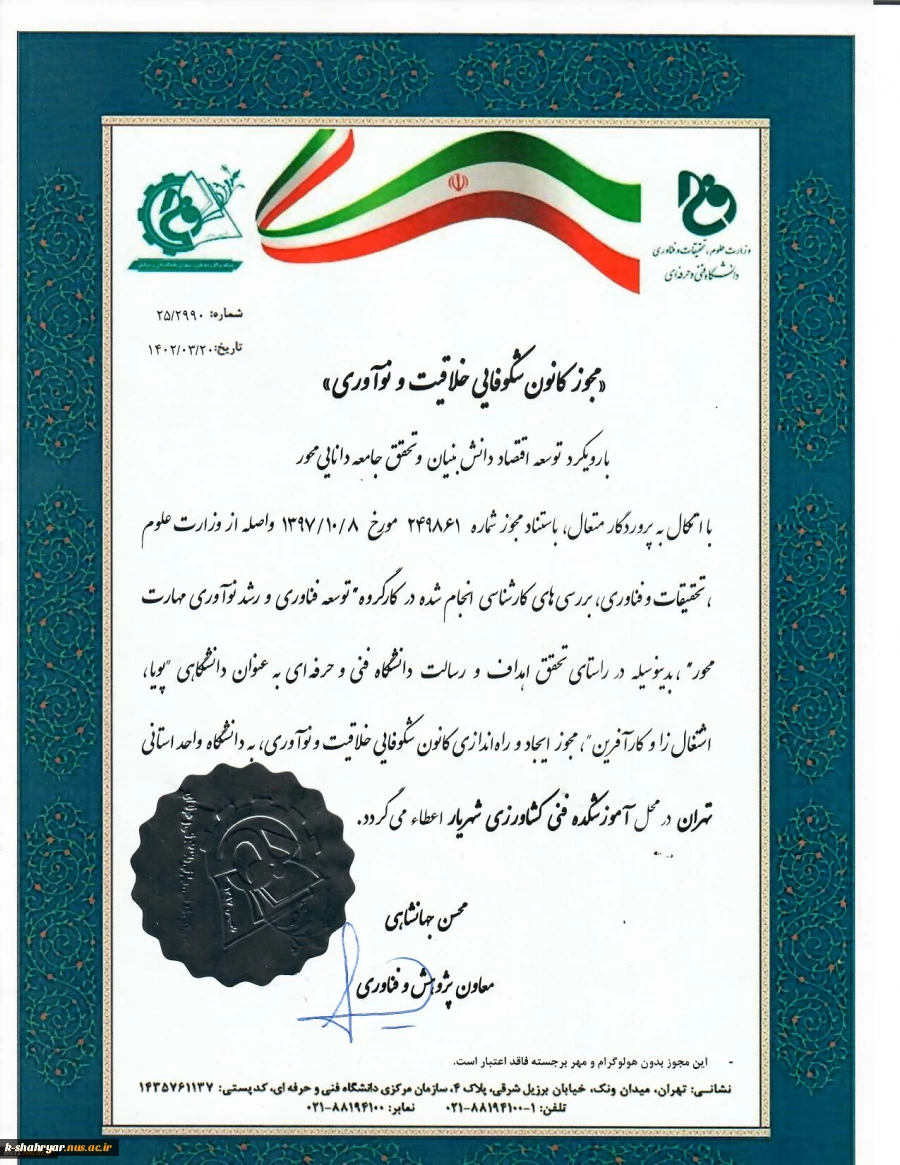 وزارت علوم، تحقیقات و فناوری
دانشگاه فنی و حرفه ای
شماره: ۲۵/۲۹۹۰
تاریخ: ۱۴۰۲/۰۳/۲۰
«مجوز کانون شکوفایی خلاقیت و نوآوری»
با رویکرد توسعه اقتصاد دانش بنیان و تحقق جامعه دانایی محور
با اتکال به پروردگار متعال، باستناد مجوز شماره ۲۴۹۸۶۱ مورخ ۱۳۹۷/۱۰/۸ واصله از وزارت علوم
، تحقیقات و فناوری، بررسی های کارشناسی انجام شده در کارگروه "توسعه فناوری و رشد نوآوری مهارت
محور"، بدینوسیله در راستای تحقق اهداف و رسالت دانشگاه فنی و حرفه ای به عنوان دانشگاهی "پویا،
اشتغال زا و کارآفرین"، مجوز ایجاد و راه اندازی کانون شکوفایی خلاقیت و نوآوری، به دانشگاه واحد استانی
تهران در محل آموزشکده فنی کشاورزی شهریار اعطاء می گردد.
محسن جهانشاهی
معاون پژوهش و فناوری
- این مجوز بدون هولوگرام و مهر برجسته فاقد اعتبار است.
نشانی: تهران، میدان ونک، خیابان برزیل شرقی، پلاک ۴، سازمان مرکزی دانشگاه فنی و حرفه ای، کدپستی: ۱۴۳۵۷۶۱۱۳۷
تلفن: ۱-۸۸۱۹۴۱۰۰-۰۲۱ نمابر: ۸۸۱۹۴۱۰۰-۰۲۱
k-shahryar.nus.ac.ir